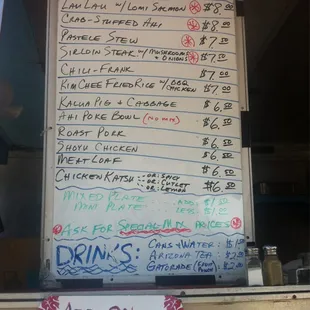 LAU LAU w/ LOMI SALMON $8.00
CRAB-STUFFED AHI $8.00
PASTELE STEW $7.50
SIRLOIN STEAK w/ MUSHROOMS + ONIONS $7.00
CHILI-FRANK $7.00
KIM CHEE FRIED RICE w/ BBQ CHICKEN $7.00
KALUA PIG + CABBAGE $6.50
AHI POKE BOWL $6.50
ROAST PORK $6.50
SHOYU CHICKEN $6.50
MEAT LOAF $6.50
CHICKEN KATSU OR: SPICY OR: CUTLET OR: LEMON $6.50
MIXED PLATE ADD
MINI PLATE LESS
ASK FOR SPECIAL MIX PRICES
DRINKS: CANS + WATER:
ARIZONA TEA
GATORADE